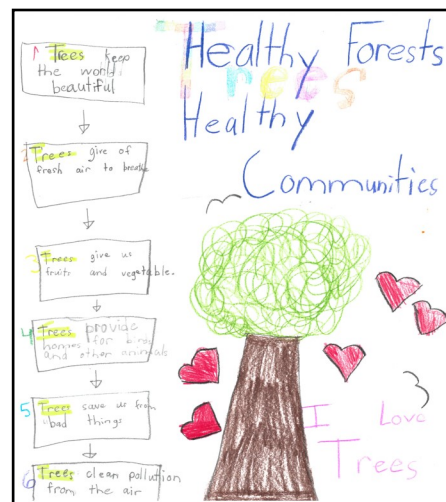 1 Trees keep
the world
beautiful
2 Trees give of
fresh air to breathe
3 Trees give us
fruits and vegetable.
4 Trees provide
homes for birds
and other animals
5 Trees save us from
bad things
6 Trees clean pollution
from the air
Healthy Forests
Trees
Healthy
Communities
I Love
Trees